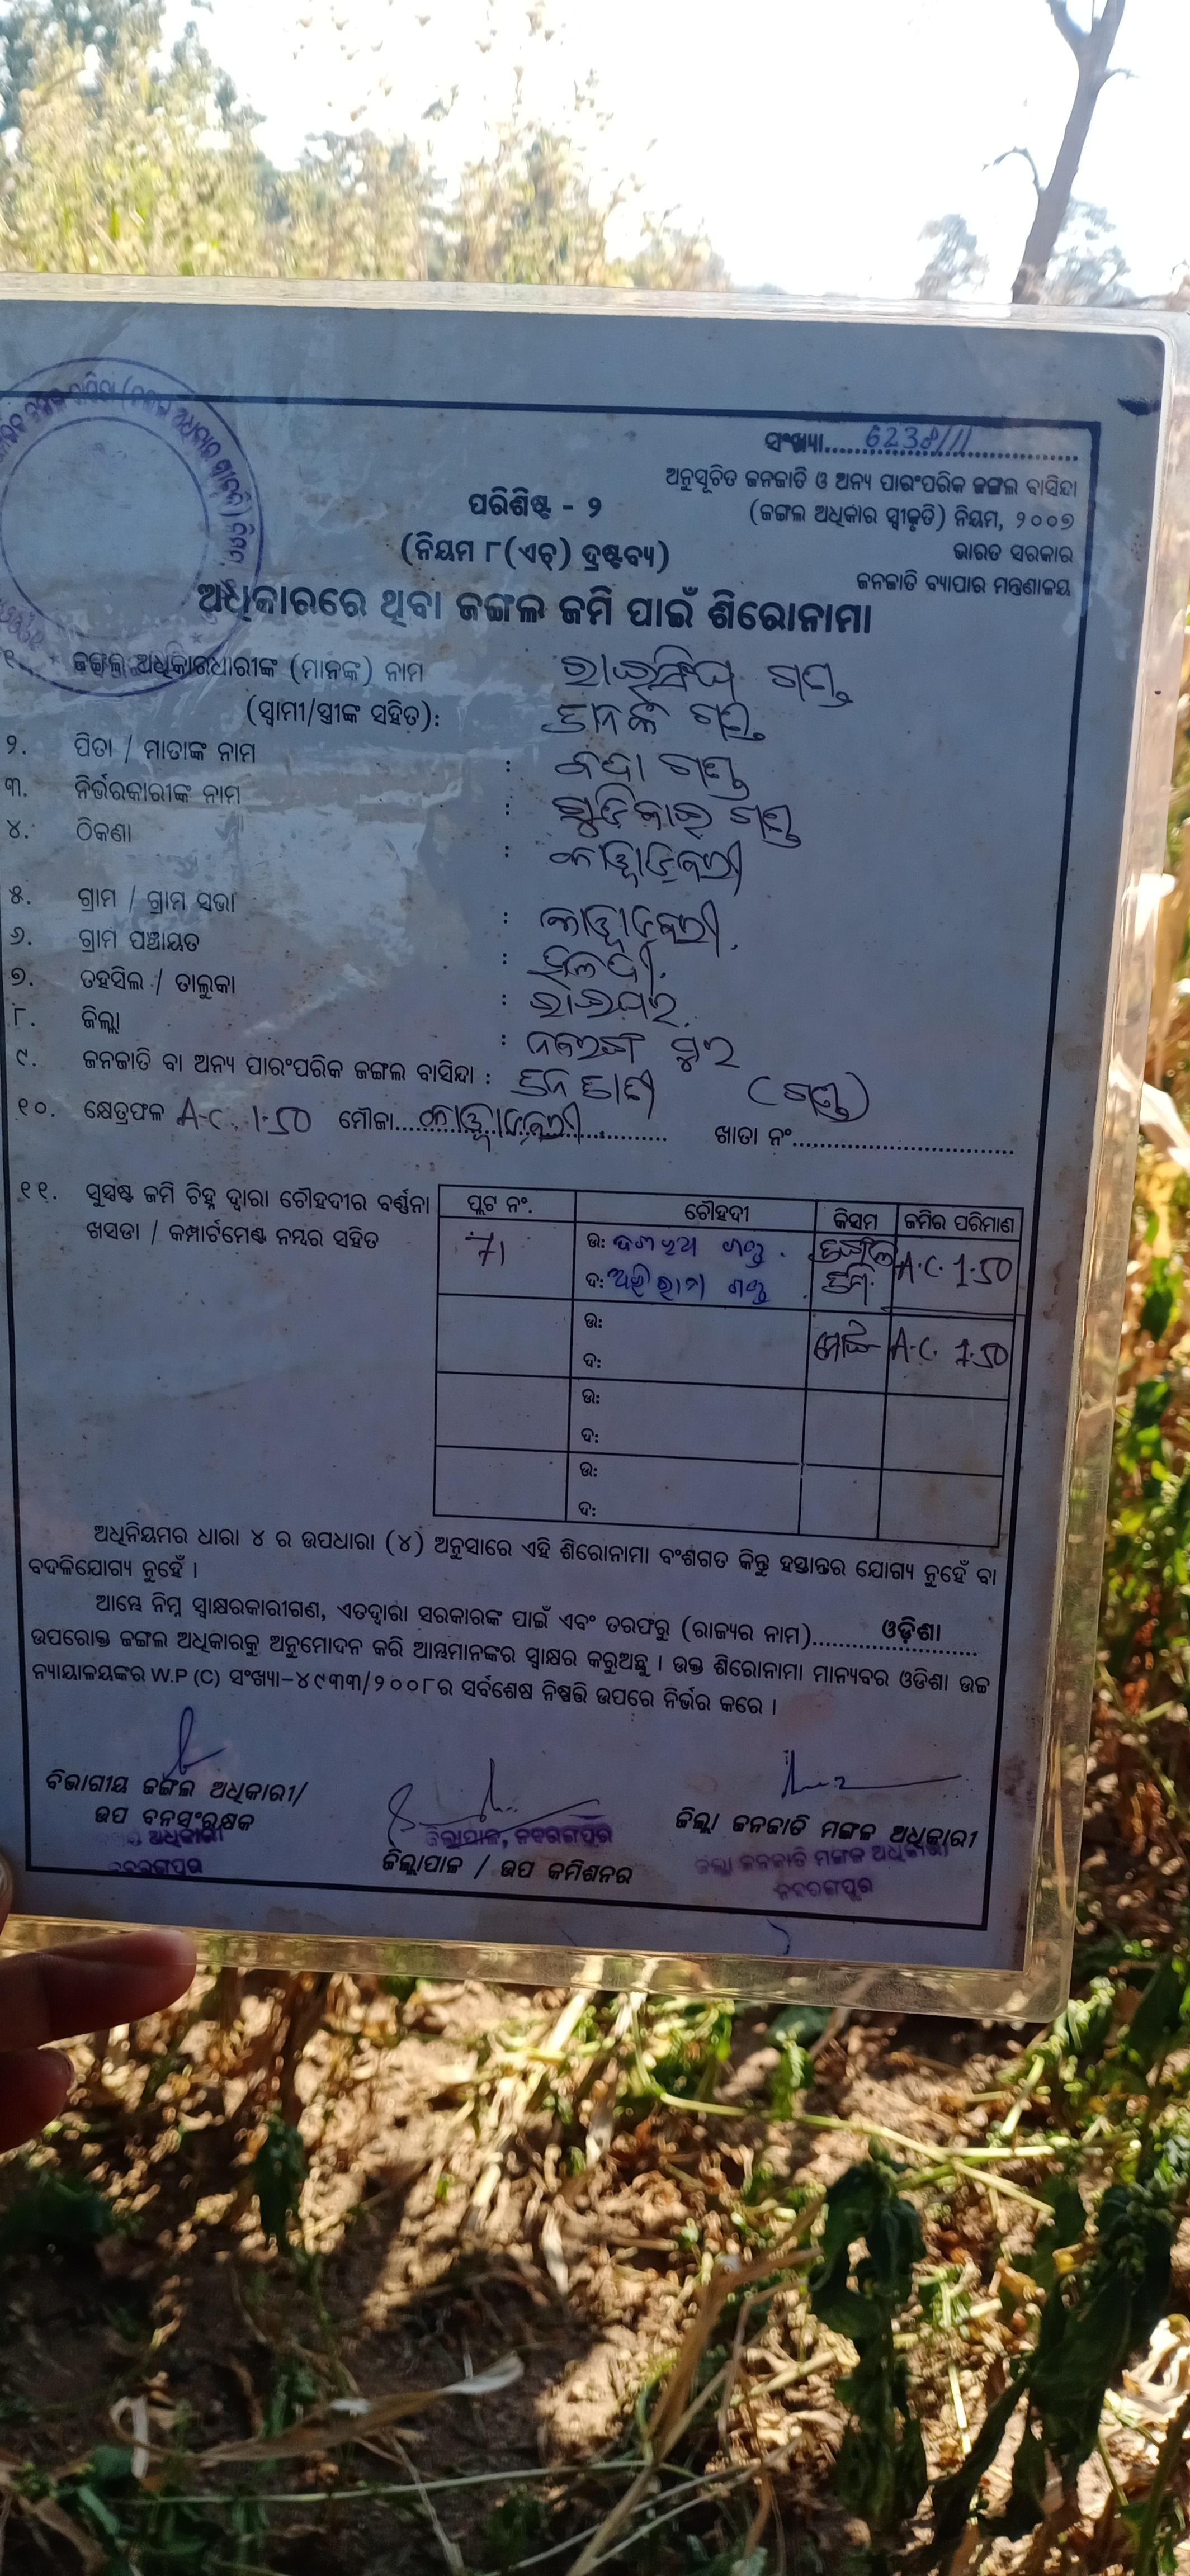 ସଂଖ୍ୟା......6238/11
ଅନୁସୂଚିତ ଜନଜାତି ଓ ଅନ୍ୟ ପାରଂପରିକ ଜଙ୍ଗଲ ବାସିନ୍ଦା
(ଜଙ୍ଗଲ ଅଧିକାର ସ୍ୱୀକୃତି) ନିୟମ, ୨୦୦୭
ଭାରତ ସରକାର
ଜନଜାତି ବ୍ୟାପାର ମନ୍ତ୍ରଣାଳୟ
ପରିଶିଷ୍ଟ - ୨
(ନିୟମ ୮(ଏଚ୍) ଦ୍ରଷ୍ଟବ୍ୟ)
ଅଧିକାରରେ ଥିବା ଜଙ୍ଗଲ ଜମି ପାଇଁ ଶିରୋନାମା
୧. ଜଙ୍ଗଲ ଅଧିକାରଧାରୀଙ୍କ (ମାନଙ୍କ) ନାମ ଗଣ୍ଡ
(ସ୍ୱାମୀ/ସ୍ତ୍ରୀଙ୍କ ସହିତ): ଗଣ୍ଡ
୨. ପିତା / ମାତାଙ୍କ ନାମ : ଗଣ୍ଡ
୩. ନିର୍ଭରକାରୀଙ୍କ ନାମ : ଗଣ୍ଡ
୪. ଠିକଣା :
୫. ଗ୍ରାମ / ଗ୍ରାମ ସଭା :
୬. ଗ୍ରାମ ପଞ୍ଚାୟତ :
୭. ତହସିଲ / ତାଲୁକା : ରାଇଘର
୮. ଜିଲ୍ଲା : ନବରଙ୍ଗପୁର
୯. ଜନଜାତି ବା ଅନ୍ୟ ପାରଂପରିକ ଜଙ୍ଗଲ ବାସିନ୍ଦା : ଜନଜାତି (ଗଣ୍ଡ)
୧୦. କ୍ଷେତ୍ରଫଳ A.C. 1.50 ମୌଜା...... ଖାତା ନଂ......
୧୧. ସୁସ୍ପଷ୍ଟ ଜମି ଚିହ୍ନ ଦ୍ୱାରା ଚୌହଦୀର ବର୍ଣ୍ଣନା
ଖସଡା / କମ୍ପାର୍ଟମେଣ୍ଟ ନମ୍ବର ସହିତ
ପ୍ଲଟ ନଂ. ଚୌହଦୀ କିସମ ଜମିର ପରିମାଣ
71 ଉ: ଦଶରଥ ଗଣ୍ଡ ଜଙ୍ଗଲ A.C. 1.50
ଦ: ଗଣ୍ଡ ଜମି
ଉ: ମୋଟ A.C. 1.50
ଦ:
ଉ:
ଦ:
ଉ:
ଦ:
ଅଧିନିୟମର ଧାରା ୪ ର ଉପଧାରା (୪) ଅନୁସାରେ ଏହି ଶିରୋନାମା ବଂଶଗତ କିନ୍ତୁ ହସ୍ତାନ୍ତର ଯୋଗ୍ୟ ନୁହେଁ ବା
ବଦଳିଯୋଗ୍ୟ ନୁହେଁ ।
ଆମ୍ଭେ ନିମ୍ନ ସ୍ୱାକ୍ଷରକାରୀଗଣ, ଏତଦ୍ୱାରା ସରକାରଙ୍କ ପାଇଁ ଏବଂ ତରଫରୁ (ରାଜ୍ୟର ନାମ)......ଓଡ଼ିଶା......
ଉପରୋକ୍ତ ଜଙ୍ଗଲ ଅଧିକାରକୁ ଅନୁମୋଦନ କରି ଆମ୍ଭମାନଙ୍କର ସ୍ୱାକ୍ଷର କରୁଅଛୁ । ଉକ୍ତ ଶିରୋନାମା ମାନ୍ୟବର ଓଡିଶା ଉଚ୍ଚ
ନ୍ୟାୟାଳୟଙ୍କର W.P (C) ସଂଖ୍ୟା-୪୯୩୩/୨୦୦୮ର ସର୍ବଶେଷ ନିଷ୍ପତ୍ତି ଉପରେ ନିର୍ଭର କରେ ।
ବିଭାଗୀୟ ଜଙ୍ଗଲ ଅଧିକାରୀ/
ଉପ ବନସଂରକ୍ଷକ
ଅଧିକାରୀ
ନବରଙ୍ଗପୁର
ଜିଲ୍ଲାପାଳ, ନବରଙ୍ଗପୁର
ଜିଲ୍ଲାପାଳ / ଉପ କମିଶନର
ଜିଲ୍ଲା ଜନଜାତି ମଙ୍ଗଳ ଅଧିକାରୀ
ଜିଲ୍ଲା ଜନଜାତି ମଙ୍ଗଳ ଅଧିକାରୀ
ନବରଙ୍ଗପୁର